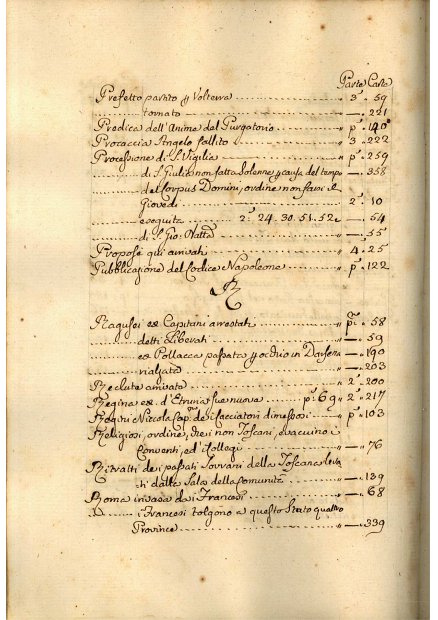 Parte Carte
Prefetto partito p Volterra ............ " 3.ª „ 59
............ tornato ............ " —. 221
Predica dell'Anime del Purgatorio ............ " pª „ 140
Procaccia Angelo fallito ............ " 3 „ 222
Processione di S. Vigilia ............ " pª „ 259
............ di S. Giulia non fatta solenne p causa del tempo —. 358
............ del Corpus Domini, ordine non farsi il
Giovedì ............ " 2.ª „ 10
............ eseguita .......... 2.ª 24. 30. 51. 52 e —. 54
............ di S. Gio: Natta ............ " —. 55
Proposti qui arrivati ............ " 4 „ 25
Pubblicazione del Codice Napoleone ............ " pª „ 122
R
Ragusei ed Capitani arrestati ............ " pª „ 58
............ detti Liberati ............ " —. 59
............ ed Pollacca passata p occhio in Darsena —. 190
............ rialzata ............ " —. 203
Reclute arrivate ............ " 2.ª „ 200
Regina ed. d'Etruria sue nuove ........ pª 69 " 2.ª „ 217
Nicola Cap. dei Cacciatori dimessosi " pª „ 103
Religiosi, ordine, che i non Toscani, evacuino i
Conventi, ed i Collegi ............ " —. 76
Ritratti dei passati Sovrani della Toscana leva
ti dalla Sala della Comunità ............ " —. 139
Roma invasa dai Francesi ............ " —. 68
............ i Francesi tolgono a questo Stato quattro
Province ............ " —. 339